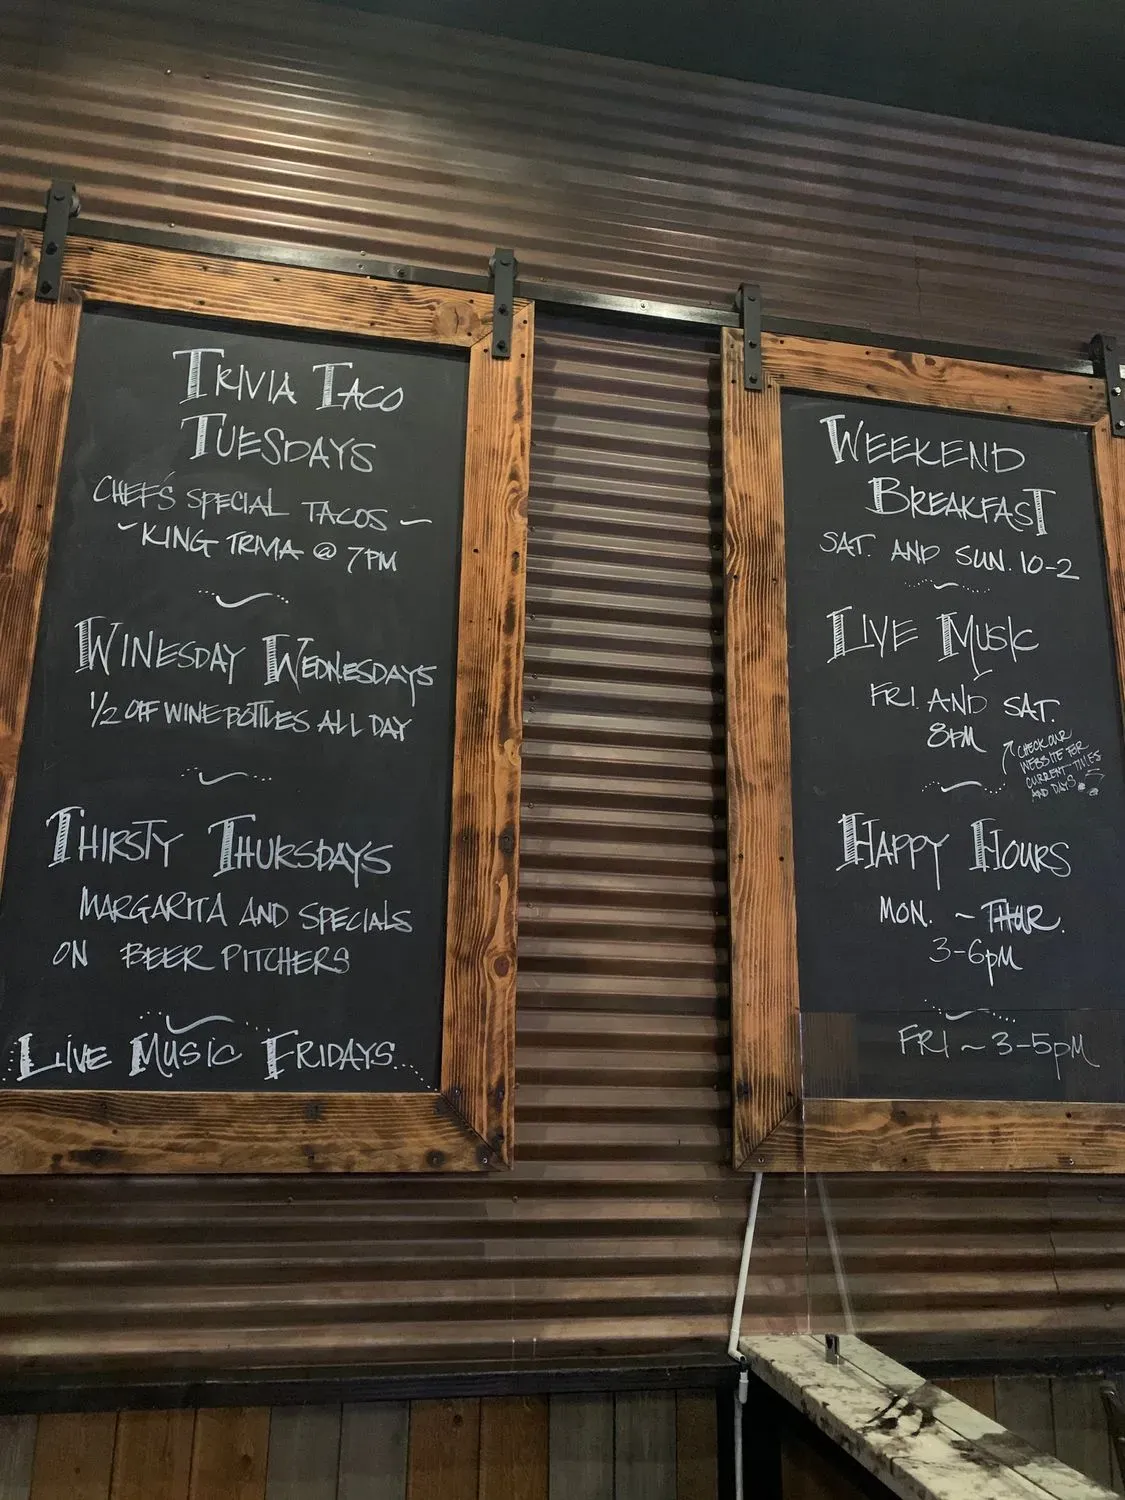 TRIVIA TACO
TUESDAYS
CHEF'S SPECIAL TACOS ~
~KING TRIVIA @ 7PM
WINESDAY WEDNESDAYS
1/2 OFF WINE BOTTLES ALL DAY
THIRSTY THURSDAYS
MARGARITA AND SPECIALS
ON BEER PITCHERS
LIVE MUSIC FRIDAYS...
WEEKEND
BREAKFAST
SAT. AND SUN. 10-2
LIVE MUSIC
FRI AND SAT.
8PM
CHECK OUR
WEBSITE FOR
CURRENT TIMES
AND DAYS.
HAPPY HOURS
MON. ~ THUR.
3-6pM
FRI ~ 3-5pM